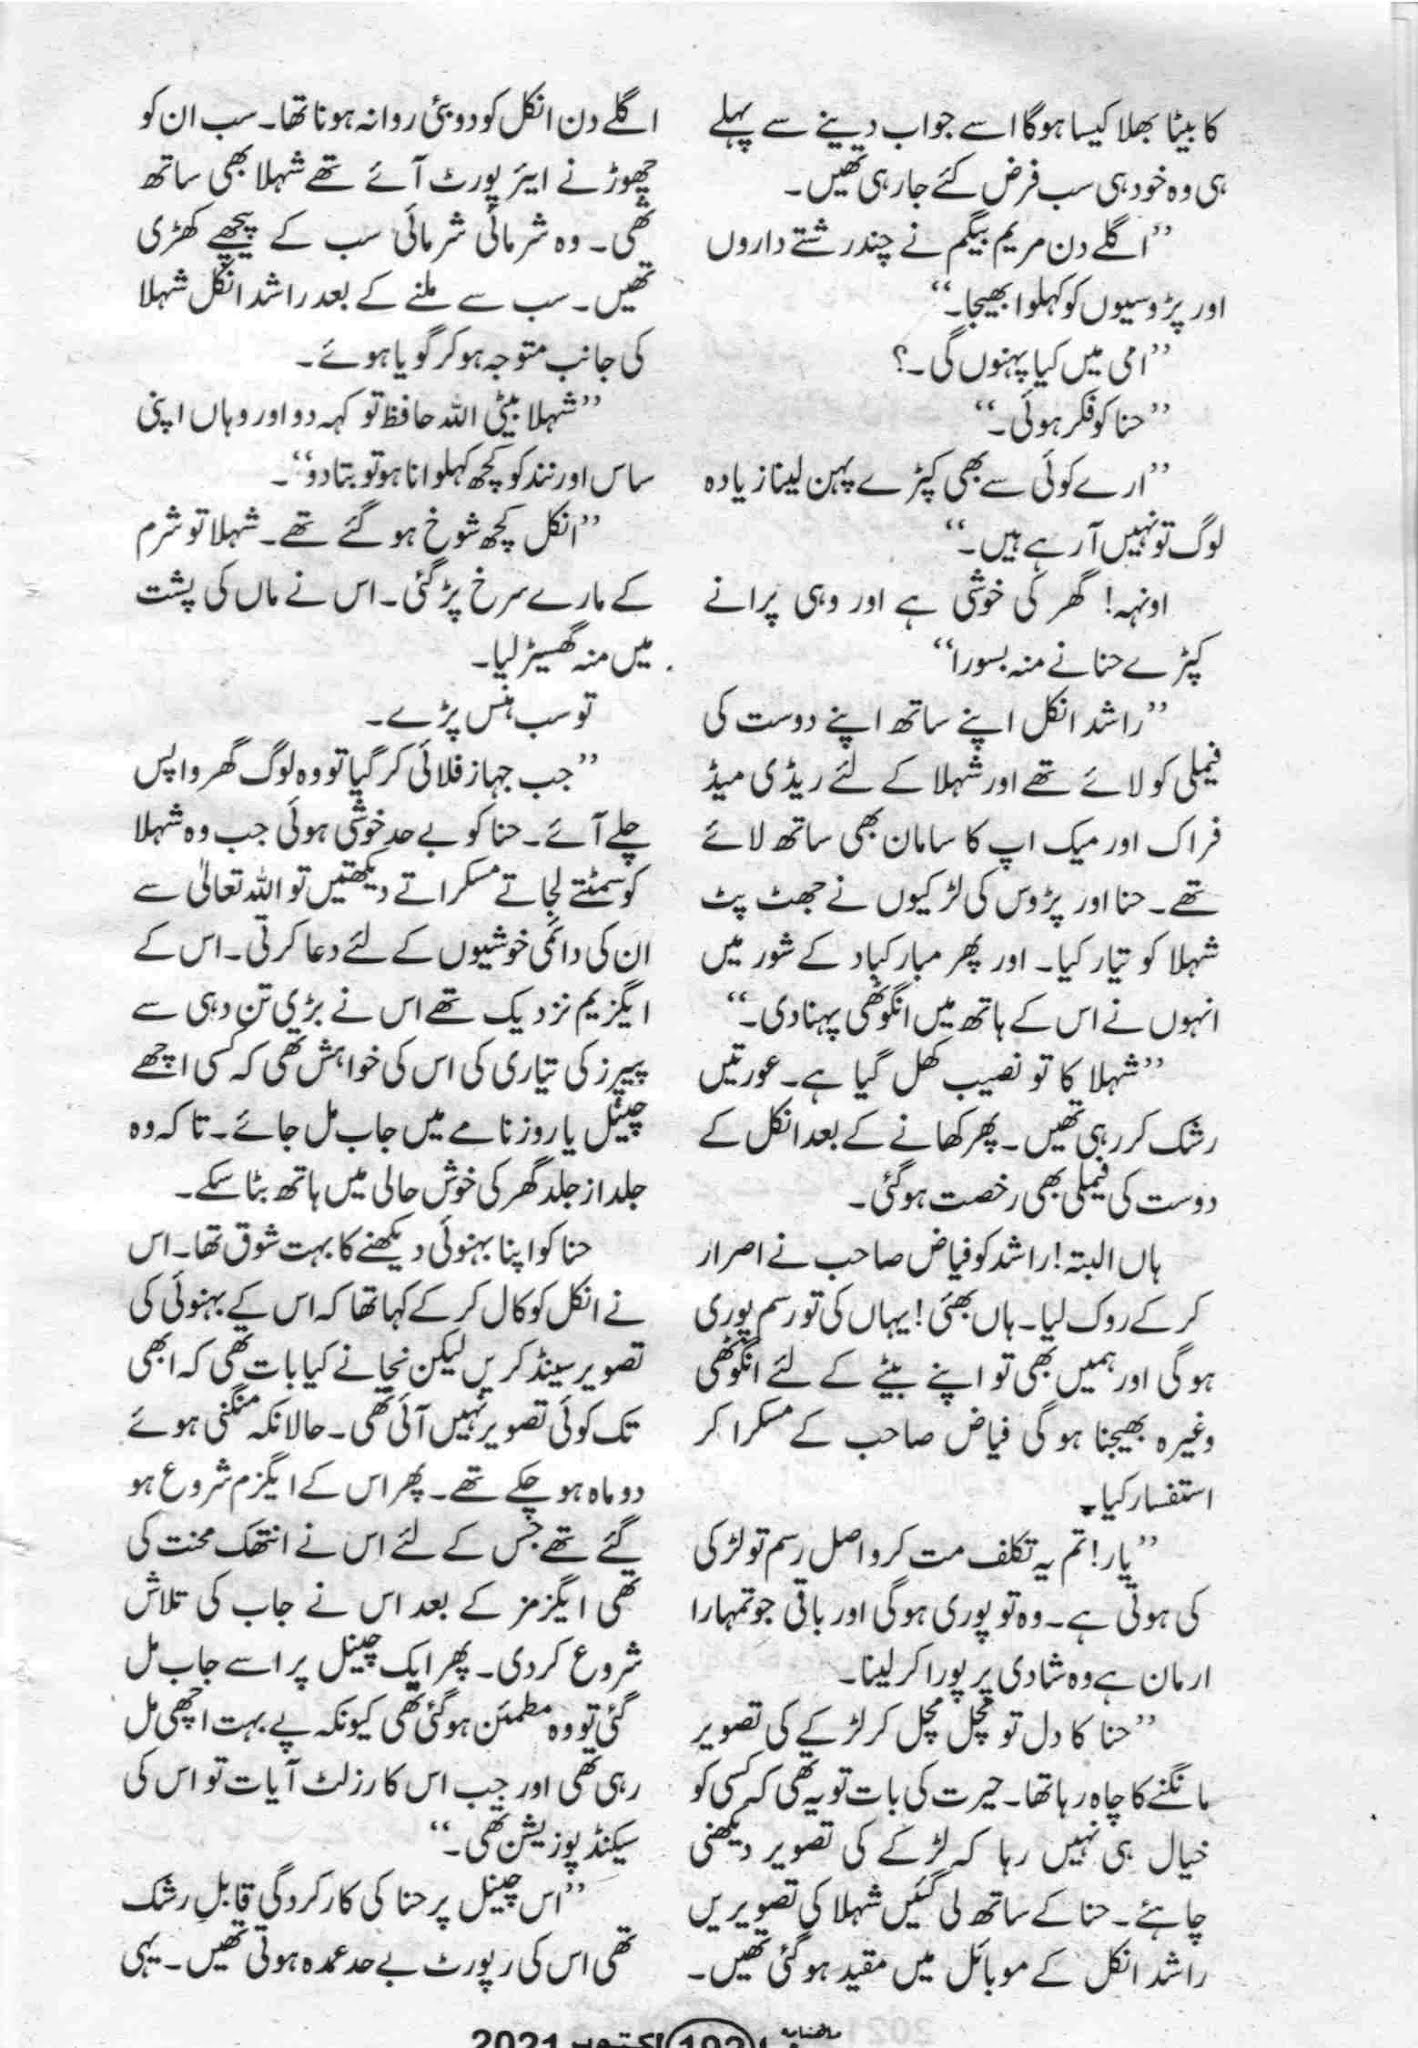 کا بیٹا بھلا کیسا ہوگا اسے جواب دینے سے پہلے
ہی وہ خود ہی سب فرض کئے جا رہی تھیں۔
”اگلے دن مریم بیگم نے چند رشتے داروں
اور پڑوسیوں کو کہلوا بھیجا۔“
”امی میں کیا پہنوں گی۔؟
”حنا کو فکر ہوئی۔“
”ارے کوئی سے بھی کپڑے پہن لینا زیادہ
لوگ تو نہیں آ رہے ہیں۔“
اونہہ! گھر کی خوشی ہے اور وہی پرانے
کپڑے حنا نے منہ بسورا“
”راشد انکل اپنے ساتھ اپنے دوست کی
فیملی کو لائے تھے اور شہلا کے لئے ریڈی میڈ
فراک اور میک اپ کا سامان بھی ساتھ لائے
تھے۔ حنا اور پڑوس کی لڑکیوں نے جھٹ پٹ
شہلا کو تیار کیا۔ اور پھر مبارکباد کے شور میں
انہوں نے اس کے ہاتھ میں انگوٹھی پہنا دی۔“
”شہلا کا تو نصیب کھل گیا ہے۔ عورتیں
رشک کر رہی تھیں۔ پھر کھانے کے بعد انکل کے
دوست کی فیملی بھی رخصت ہوگئی۔
ہاں البتہ! راشد کو فیاض صاحب نے اصرار
کر کے روک لیا۔ ہاں بھئی! یہاں کی تو رسم پوری
ہوگی اور ہمیں بھی تو اپنے بیٹے کے لئے انگوٹھی
وغیرہ بھیجنا ہوگی فیاض صاحب کے مسکرا کر
استفسار کیا۔
”یار! تم یہ تکلف مت کرو اصل رسم تو لڑکی
کی ہوتی ہے۔ وہ تو پوری ہوگی اور باقی جو تمہارا
ارمان ہے وہ شادی پر پورا کر لینا۔
”حنا کا دل تو مچل مچل کر لڑکے کی تصویر
مانگنے کا چاہ رہا تھا۔ حیرت کی بات تو یہ تھی کہ کسی کو
خیال ہی نہیں رہا کہ لڑکے کی تصویر دیکھنی
چاہئے۔ حنا کے ساتھ لی گئیں شہلا کی تصویریں
راشد انکل کے موبائل میں مقید ہوگئی تھیں۔
اگلے دن انکل کو دوبئی روانہ ہونا تھا۔ سب ان کو
چھوڑنے ایئر پورٹ آئے تھے شہلا بھی ساتھ
تھی۔ وہ شرمائی شرمائی سب کے پیچھے کھڑی
تھیں۔ سب سے ملنے کے بعد راشد انکل شہلا
کی جانب متوجہ ہو کر گویا ہوئے۔
”شہلا بیٹی اللہ حافظ تو کہہ دو اور وہاں اپنی
ساس اور نند کو کچھ کہلوانا ہو تو بتا دو“۔
”انکل کچھ شوخ ہو گئے تھے۔ شہلا تو شرم
کے مارے سرخ پڑ گئی۔ اس نے ماں کی پشت
میں منہ گھسیڑ لیا۔
تو سب ہنس پڑے۔
”جب جہاز فلائی کر گیا تو وہ لوگ گھر واپس
چلے آئے۔ حنا کو بے حد خوشی ہوئی جب وہ شہلا
کو سمٹتے لجاتے مسکراتے دیکھتیں تو اللہ تعالیٰ سے
ان کی دائمی خوشیوں کے لئے دعا کرتی۔ اس کے
ایگزیم نزدیک تھے اس نے بڑی تن دہی سے
پیپرز کی تیاری کی اس کی خواہش تھی کہ کسی اچھے
چینل یا روزنامے میں جاب مل جائے۔ تا کہ وہ
جلد از جلد گھر کی خوش حالی میں ہاتھ بٹا سکے۔
حنا کو اپنا بہنوئی دیکھنے کا بہت شوق تھا۔ اس
نے انکل کو کال کر کے کہا تھا کہ اس کے بہنوئی کی
تصویر سینڈ کریں لیکن نجانے کیا بات تھی کہ ابھی
تک کوئی تصویر نہیں آئی تھی۔ حالانکہ منگنی ہوئے
دو ماہ ہو چکے تھے۔ پھر اس کے ایگزم شروع ہو
گئے تھے جس کے لئے اس نے انتھک محنت کی
تھی ایگزمز کے بعد اس نے جاب کی تلاش
شروع کر دی۔ پھر ایک چینل پر اسے جاب مل
گئی تو وہ مطمئن ہوگئی تھی کیونکہ پے بہت اچھی مل
رہی تھی اور جب اس کا رزلٹ آیات تو اس کی
سیکنڈ پوزیشن تھی۔“
”اس چینل پر حنا کی کارکردگی قابلِ رشک
تھی اس کی رپورٹ بے حد عمدہ ہوتی تھیں۔ یہی
ماهنامه 193 اکتوبر 2021